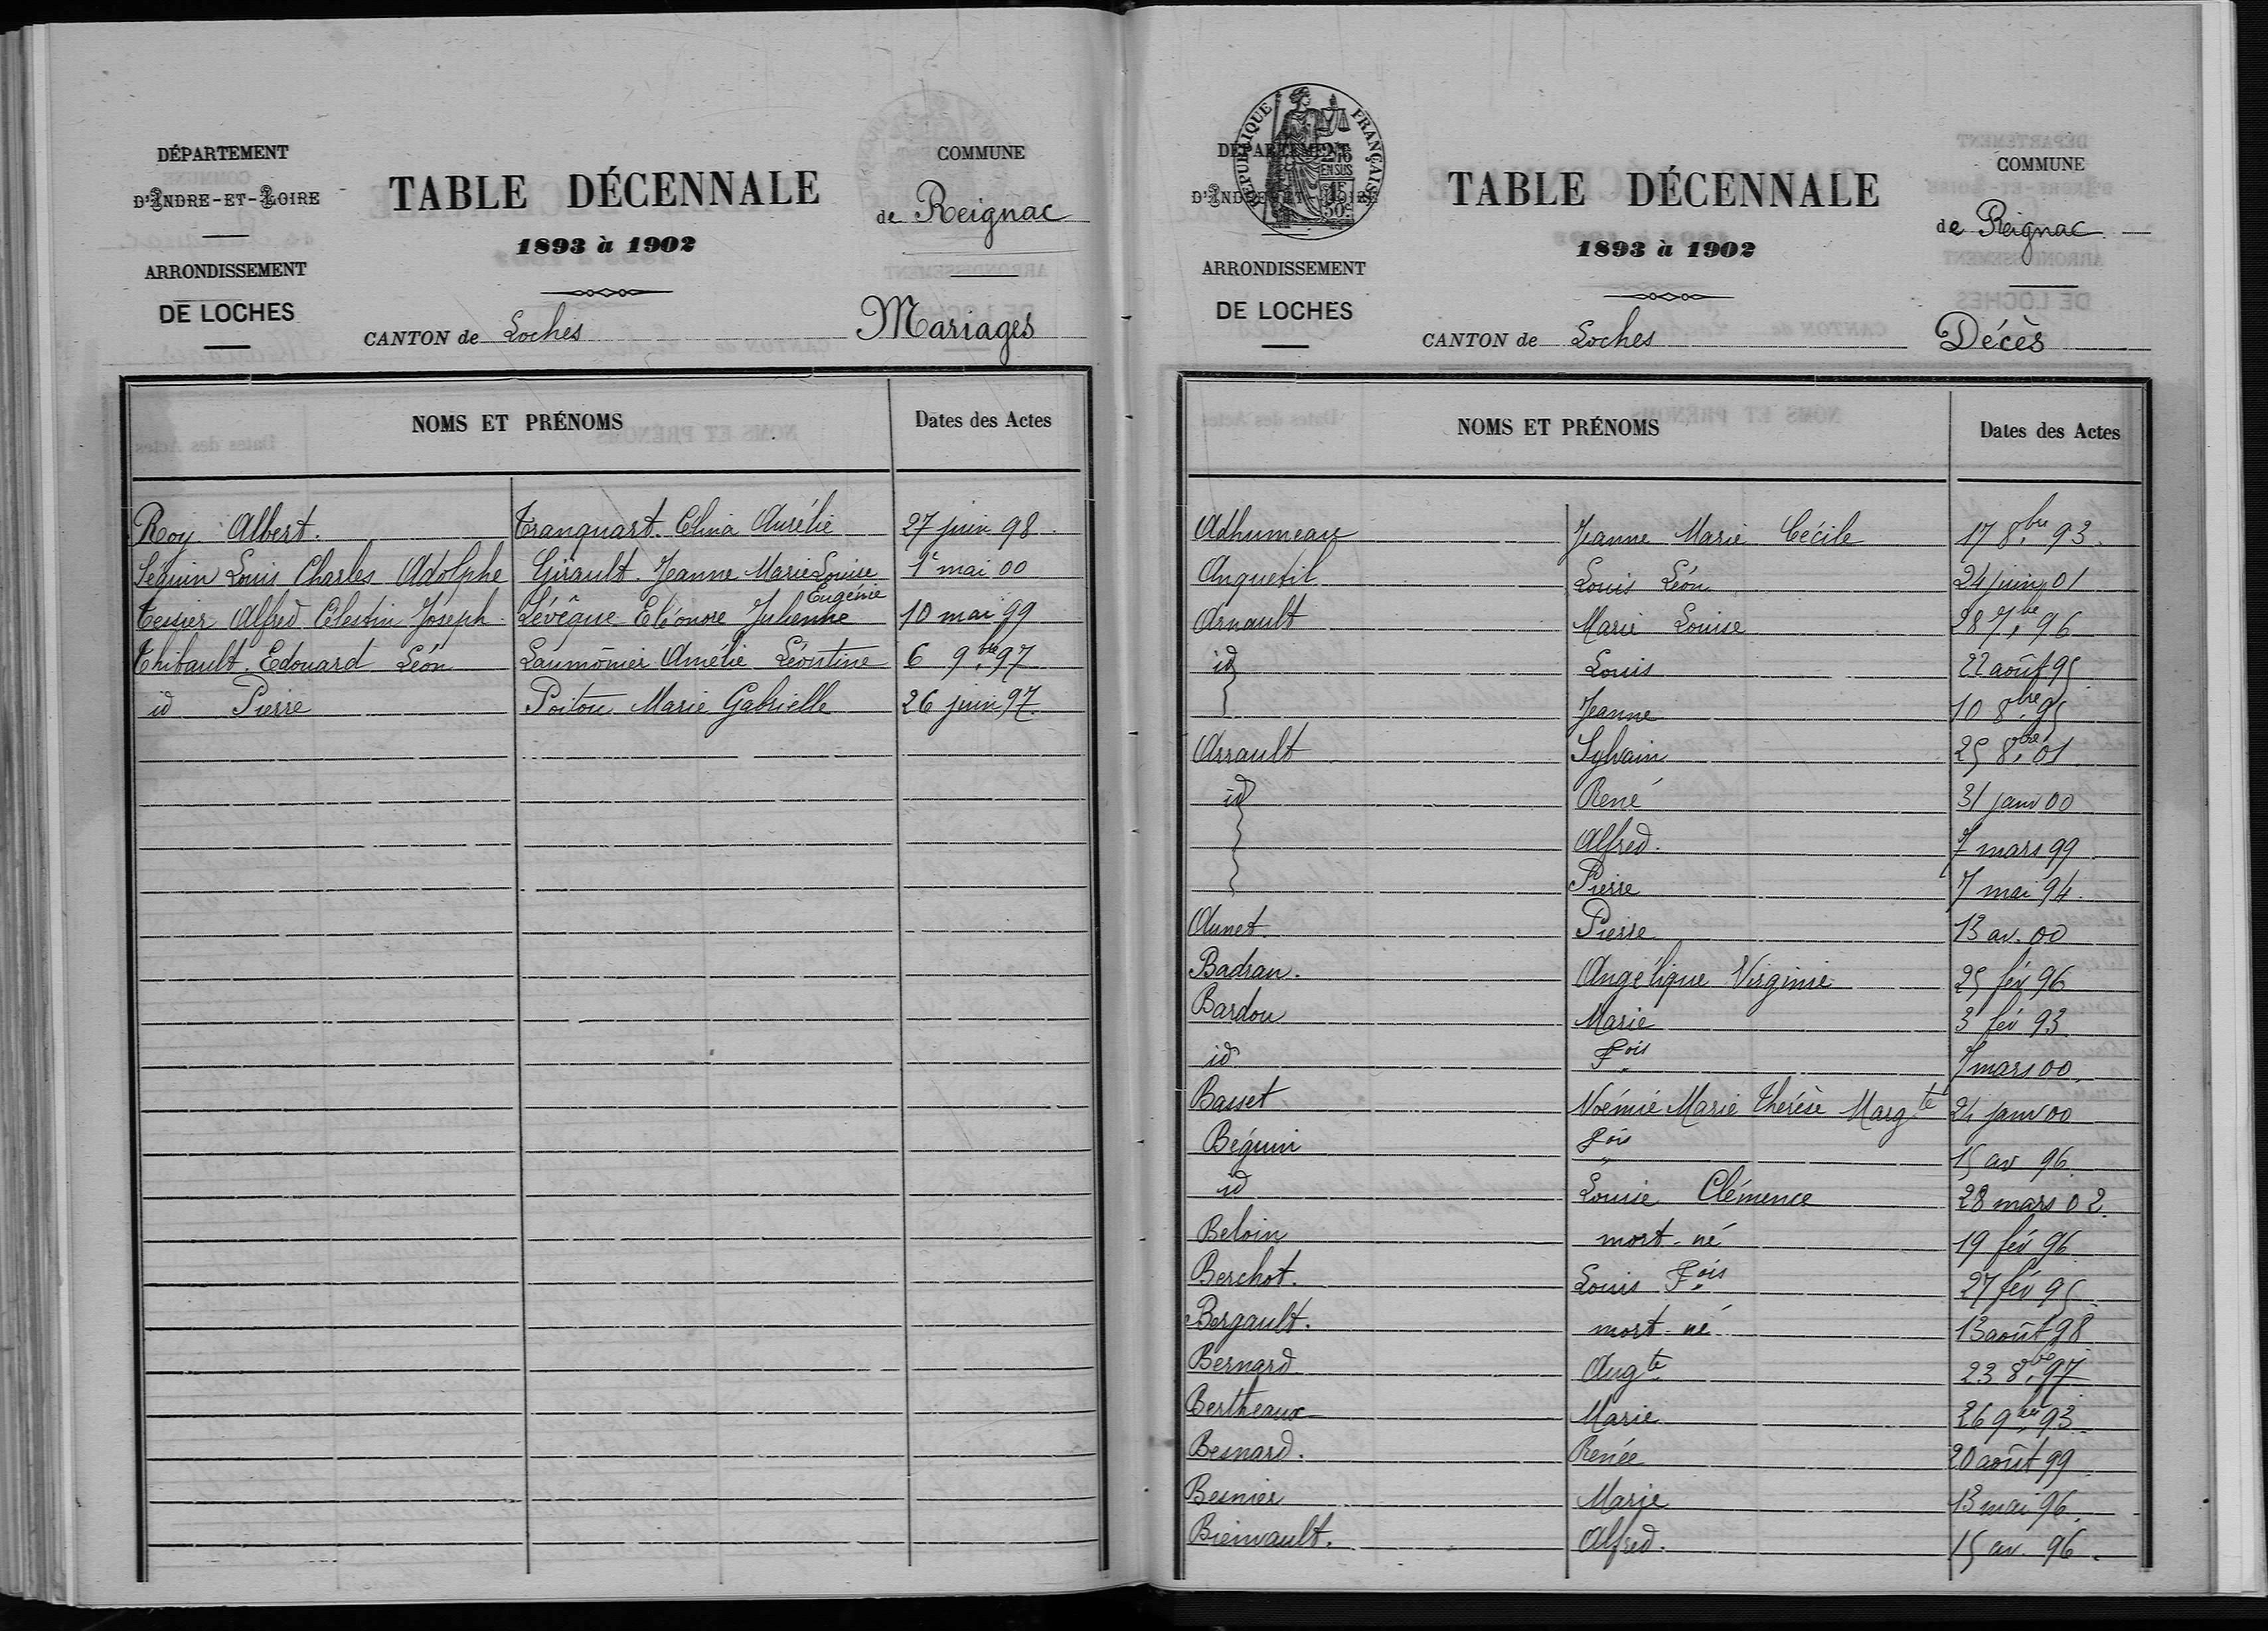 DÉPARTEMENT
D'INDRE-ET-LOIRE
ARRONDISSEMENT
DE LOCHES
TABLE DÉCENNALE
1893 à 1902
CANTON de Loches
COMMUNE
de Reignac
Mariages
NOMS ET PRÉNOMS Dates des Actes
Roy Albert. Tranquart Clina Aurélie 27 juin 98
Séguin Louis Charles Adolphe Girault Jeanne Marie Louise 1er mai 00
Eugénie
Tessier Alfred Célestin Joseph Lévêque Eléonore Julienne 10 mai 99
Thibault Edouard Léon Laumônier Amélie Léontine 6 9bre 97
id Pierre Poitou Marie Gabrielle 26 juin 97
RÉPUBLIQUE FRANÇAISE
2/10 EN SUS
DÉPARTEMENT
D'INDRE-ET-LOIRE
ARRONDISSEMENT
DE LOCHES
TABLE DÉCENNALE
1893 à 1902
CANTON de Loches
COMMUNE
de Reignac
Décès
NOMS ET PRÉNOMS Dates des Actes
Adhumeau Jeanne Marie Cécile 17 8bre 93
Anquetil Louis Léon 24 juin 01
Arnault Marie Louise 28 7bre 96
id Louis 22 août 95
Jeanne 10 8bre 95
Arrault Sylvain 25 8bre 01
id René 31 janv 00
Alfred. 7 mars 99
Pierre 7 mai 94
Aunet Pierre 13 av. 00
Badran. Angélique Virginie 25 fév 96
Bardou Marie 3 fév 93
id Fois 7 mars 00
Basset Noémie Marie Thérèse Margte 24 janv 00
Béguin Fois 15 av 96
id Louise Clémence 28 mars 02
Beloin mort-né 19 fév 96
Berchot. Louis Fois 27 fév 95
Bergault. mort-né 13 août 98
Bernard Augte 23 8bre 97
Bertheaux Marie 26 9bre 93
Besnard. Renée 20 août 99
Besnier Marie 13 mai 96
Bienvault. Alfred. 15 av. 96